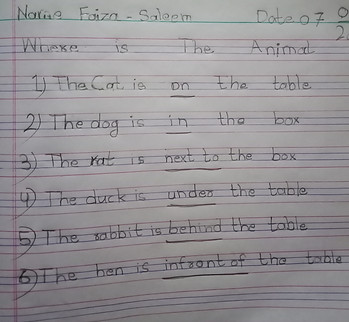 Name Faiza - Saleem Date 07
Where is The Animal
1) The Cat is on the table
2) The dog is in the box
3) The rat is next to the box
4) The duck is under the table
5) The rabbit is behind the table
6) The hen is infront of the table